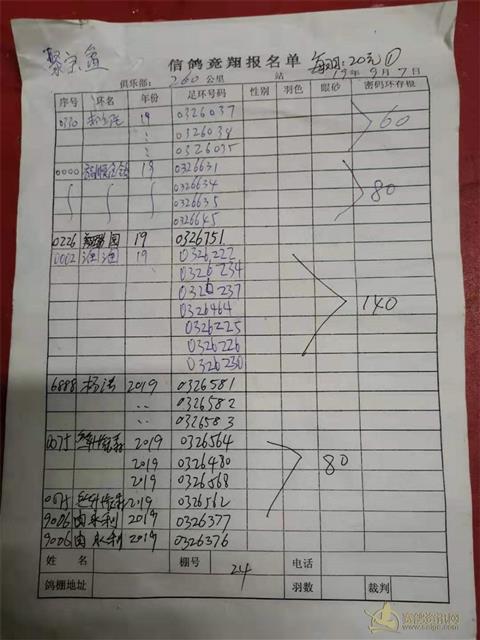 聚宝盆 信鸽竞翔报名单 每羽:20元①
俱乐部: 260公里 站 19年9月7日
序号 环名 年份 足环号码 性别 羽色 眼砂 密码环存根
0330 19 0326037
〃 0326038 60
〃 0326035
0000 19 0326631
0326634
0326635 80
0326645
0226 19 0326751
0002 19 0326222
0326234
0326237
0326464 140
0326225
0326226
0326230
6888 杨洁 2019 0326581
〃 0326582
〃 0326583
0075 2019 0326564
2019 0326480 80
2019 0326568
0075 2019 0326562
9006 由永利 2019 0326377
9006 由永利 2019 0326376
姓名 棚号 电话
鸽棚地址 24 羽数 裁判
赛鸽资讯网